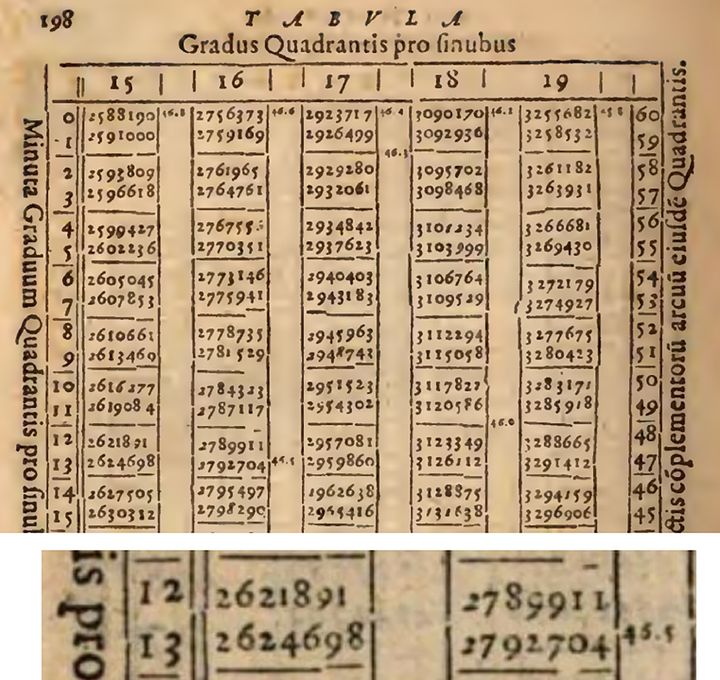 198 TABVLA
Gradus Quadrantis pro sinubus
15 16 17 18 19
0 2588190 46.8 2756373 46.6 2923717 46.4 3090170 46.1 3255682 45.8 60
1 2591000 2759169 2926499 3092936 3258532 59
46.3
2 2593809 2761965 2929280 3095702 3261182 58
3 2596618 2764761 2932061 3098468 3263931 57
4 2599427 2934842 3101234 3266681 56
5 2602236 2770351 2937623 3103999 3269430 55
6 2605045 2773146 2940403 3106764 3272179 54
7 2607853 2775941 2943183 3109529 3274927 53
8 2610661 2778735 2945963 3112294 3277675 52
9 2613469 2781529 2948743 3115058 3280423 51
10 2616277 2784323 2951523 3117822 3283171 50
11 2619084 2787117 2954302 3120586 3285918 49
46.0
12 2621891 2789911 2957081 3123349 3288665 48
13 2624698 2792704 46.5 2959860 3126112 3291412 47
14 2627505 2795497 2962638 3128875 3294159 46
15 2630312 2798290 2965416 3131638 3296906 45
Minuta Graduum Quadrantis pro sinub
ctis cóplementorũ arcuũ eiusdé Quadrantis.
is pro
12 2621891 2789911
13 2624698 2792704 46.5